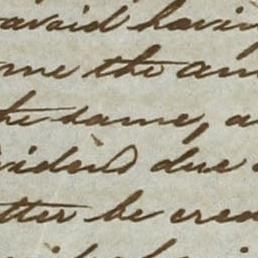 avoid having
me the am
the same, a
vidend due
tter be crea